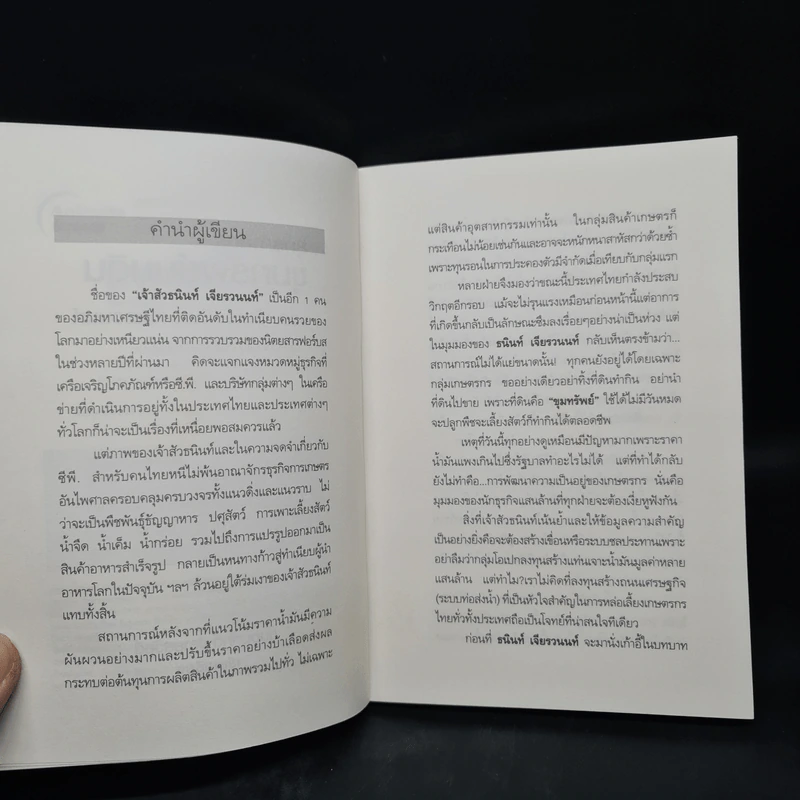 คำนำผู้เขียน
ชื่อของ “เจ้าสัวธนินท์ เจียรวนนท์” เป็นอีก 1 คน
ของอภิมหาเศรษฐีไทยที่ติดอันดับในทำเนียบคนรวยของ
โลกมาอย่างเหนียวแน่น จากการรวบรวมของนิตยสารฟอร์บส
ในช่วงหลายปีที่ผ่านมา คิดจะแจกแจงหมวดหมู่ธุรกิจที่
เครือเจริญโภคภัณฑ์หรือซี.พี. และบริษัทกลุ่มต่างๆ ในเครือ
ข่ายที่ดำเนินการอยู่ทั้งในประเทศไทยและประเทศต่างๆ
ทั่วโลกก็น่าจะเป็นเรื่องที่เหนื่อยพอสมควรแล้ว
แต่ภาพของเจ้าสัวธนินท์และในความจดจำเกี่ยวกับ
ซีพี. สำหรับคนไทยหนีไม่พ้นอาณาจักรธุรกิจการเกษตร
อันไพศาลครอบคลุมครบวงจรทั้งแนวดิ่งและแนวราบ ไม่
ว่าจะเป็นพืชพันธุ์ธัญญาหาร ปศุสัตว์ การเพาะเลี้ยงสัตว์
น้ำจืด น้ำเค็ม น้ำกร่อย รวมไปถึงการแปรรูปออกมาเป็น
สินค้าอาหารสำเร็จรูป กลายเป็นหนทางก้าวสู่ทำเนียบผู้นำ
อาหารโลกในปัจจุบัน ฯลฯ ล้วนอยู่ใต้ร่มเงาของเจ้าสัวธนินท์
แทบทั้งสิ้น
สถานการณ์หลังจากที่แนวโน้มราคาน้ำมันมีความ
ผันผวนอย่างมากและปรับขึ้นราคาอย่างบ้าเลือดส่งผล
กระทบต่อต้นทุนการผลิตสินค้าในภาพรวมไปทั่ว ไม่เฉพาะ
แต่สินค้าอุตสาหกรรมเท่านั้น ในกลุ่มสินค้าเกษตรก็
กระเทือนไม่น้อยเช่นกันและอาจจะหนักหนาสาหัสกว่าด้วยซ้ำ
เพราะทุนรอนในการประคองตัวมีจำกัดเมื่อเทียบกับกลุ่มแรก
หลายฝ่ายจึงมองว่าขณะนี้ประเทศไทยกำลังประสบ
วิกฤตอีกรอบ แม้จะไม่รุนแรงเหมือนก่อนหน้านี้แต่อาการ
ที่เกิดขึ้นกลับเป็นลักษณะซึมลงเรื่อยๆอย่างน่าเป็นห่วง แต่
ในมุมมองของ ธนินท์ เจียรวนนท์ กลับเห็นตรงข้ามว่า...
สถานการณ์ไม่ได้แย่ขนาดนั้น! ทุกคนยังอยู่ได้โดยเฉพาะ
กลุ่มเกษตรกร ขออย่างเดียวอย่าทิ้งที่ดินทำกิน อย่านำ
ที่ดินไปขาย เพราะที่ดินคือ “ขุมทรัพย์” ใช้ได้ไม่มีวันหมด
จะปลูกพืชจะเลี้ยงสัตว์ก็ทำกินได้ตลอดชีพ
เหตุที่วันนี้ทุกอย่างดูเหมือนมีปัญหามากเพราะราคา
น้ำมันแพงเกินไปซึ่งรัฐบาลทำอะไรไม่ได้ แต่ที่ทำได้กลับ
ยังไม่ทำคือ...การพัฒนาความเป็นอยู่ของเกษตรกร นั่นคือ
มุมมองของนักธุรกิจแสนล้านที่ทุกฝ่ายจะต้องเงี่ยหูฟังกัน
สิ่งที่เจ้าสัวธนินท์เน้นย้ำและให้ข้อมูลความสำคัญ
เป็นอย่างยิ่งคือจะต้องสร้างเขื่อนหรือระบบชลประทานเพราะ
อย่าลืมว่ากลุ่มโอเปกลงทุนสร้างแท่นเจาะน้ำมันมูลค่าหลาย
แสนล้าน แต่ทำไม?เราไม่คิดที่ลงทุนสร้างถนนเศรษฐกิจ
(ระบบท่อส่งน้ำ) ที่เป็นหัวใจสำคัญในการหล่อเลี้ยงเกษตรกร
ไทยทั่วทั้งประเทศถือเป็นโจทย์ที่น่าสนใจทีเดียว
ก่อนที่ ธนินท์ เจียรวนนท์ จะมานั่งเก้าอี้ในบทบาท